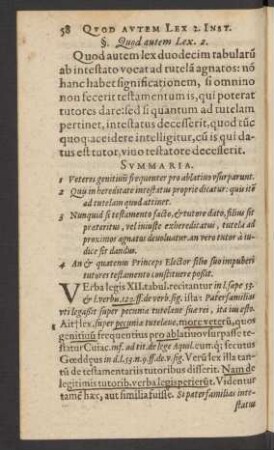 58 QVOD AVTEM LEX 2. INST.
§. Quod autem Lex. 2.
Quod autem lex duodecim tabularũ
ab intestato vocat ad tutelã agnatos: nõ
hanc habet significationem, si omnino
non fecerit testamentum is, qui poterat
tutores dare: sed si quantum ad tutelam
pertinet, intestatus decesserit. quod tũc
quoq; accidere intelligitur, cũ is qui da-
tus est tutor, viuo testatore decesserit.
SVMMARIA.
1 Veteres genitiuũ frequenter pro ablatiuo vsurparunt.
2 Quis in hereditate intestatus proprie dicatur: quis itē
ad tutelam quod attinet.
3 Nunquid si testamento facto, & tutore dato, filius sit
præteritus, vel iniuste exhereditatus, tutela ad
proximos agnatos deuoluatur: an vero tutor à iu-
dice sit dandus.
4 An & quatenus Princeps Elector filio suo impuberi
tutores testamento constituere possit.
VErba legis XII. tabul. recitantur in l. sæpe 53.
& l. verbu. 123. ff. de verb. sig. ista: Paterfamilias
vti legassit super pecuniæ tutelaue suæ rei, ita ius est.
1 Ait lex, super pecunia tutelaue, more veterũ, quos
genitiuũ frequentius pro ablatiuo vsurpasse te-
statur Cuiac. inf. ad tit. de lege Aquil. cum q; secutus
Gœddęus in d. l. 53. n. 9. ff. de v. sig. Verũ lex illa tan-
tũ de testamentariis tutoribus disserit. Nam de
legitimis tutorib. verba legis perierũt. Videntur
tamē hæc, aut similia fuisse. Si paterfamilias inte-
status